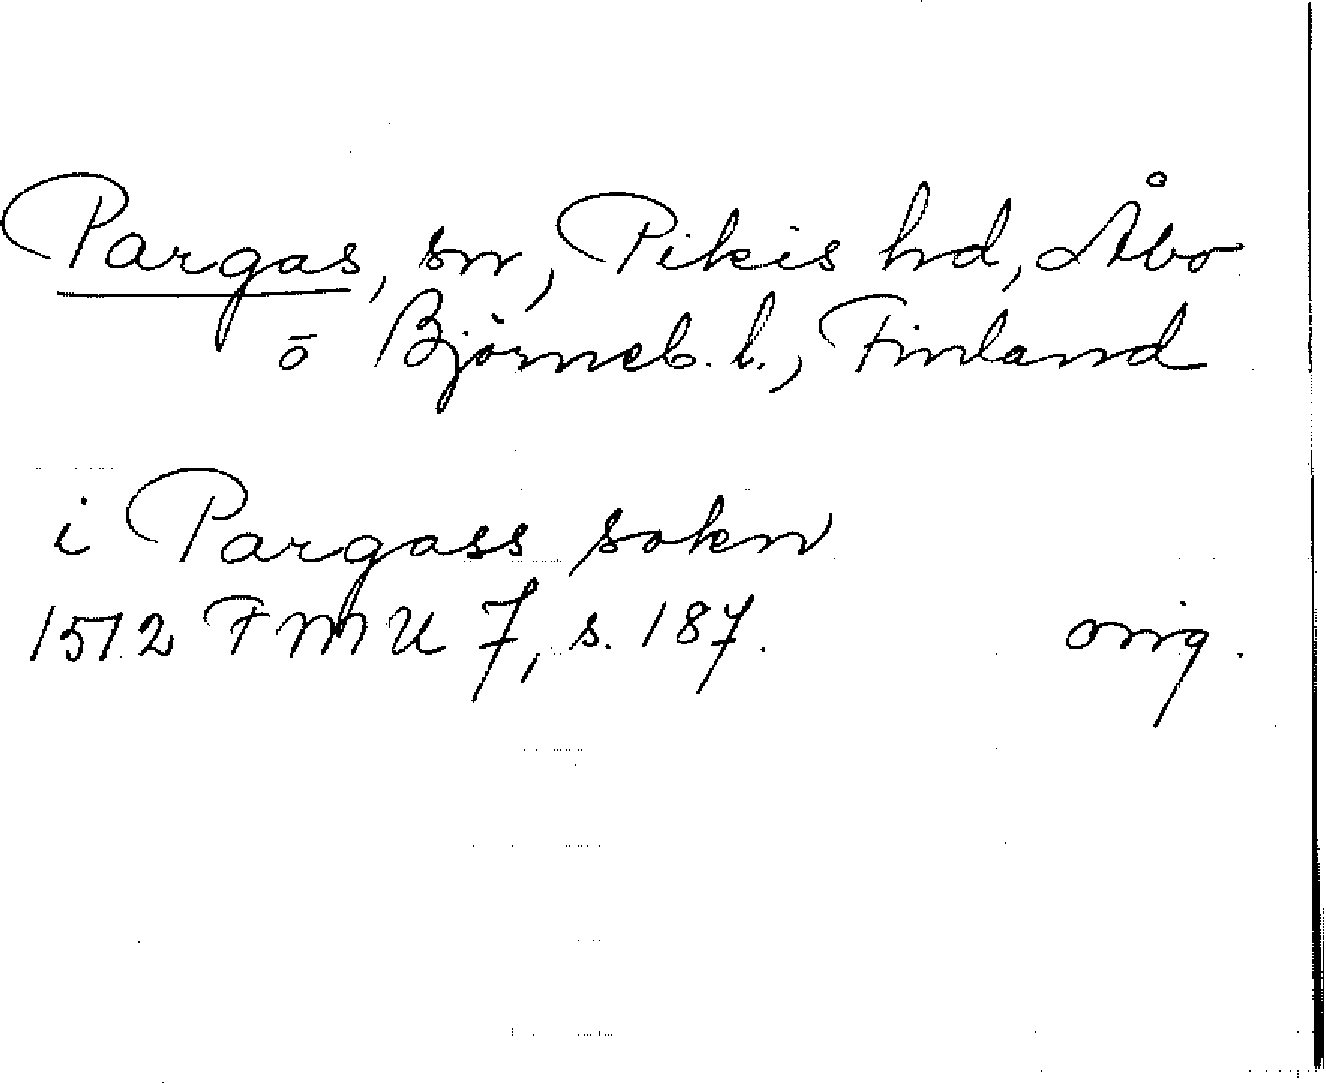 Pargas, sn, Pikis hd, Åbo
o Björneb. l., Finland
i Pargass sokn
1512 FMU 7, s. 187. orig.